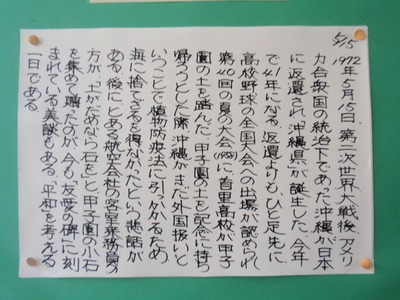 5/15
1972年5月15日、第二次世界大戦後、アメリ
カ合衆国の統治下であった沖縄が日本
に返還され「沖縄県」が誕生した。今年
で41年になる。返還よりもひと足先に
高校野球の全国大会への出場が認められ
第40回の夏の大会(1958)に、首里高校が甲子
園の土を踏んだ。甲子園の土を記念に持ち
帰ろうとした際、沖縄がまだ外国扱いと
いうことで植物防疫法に引っかかるため
海に捨てざるを得なかったという悲話が
ある。後に、とある航空会社の客室乗務員の
方が、「土がだめなら石を」と、甲子園の小石
を集めて贈ったのが、今も「友愛の碑」に刻
まれている美談もある。「平和」を考える
一日である。